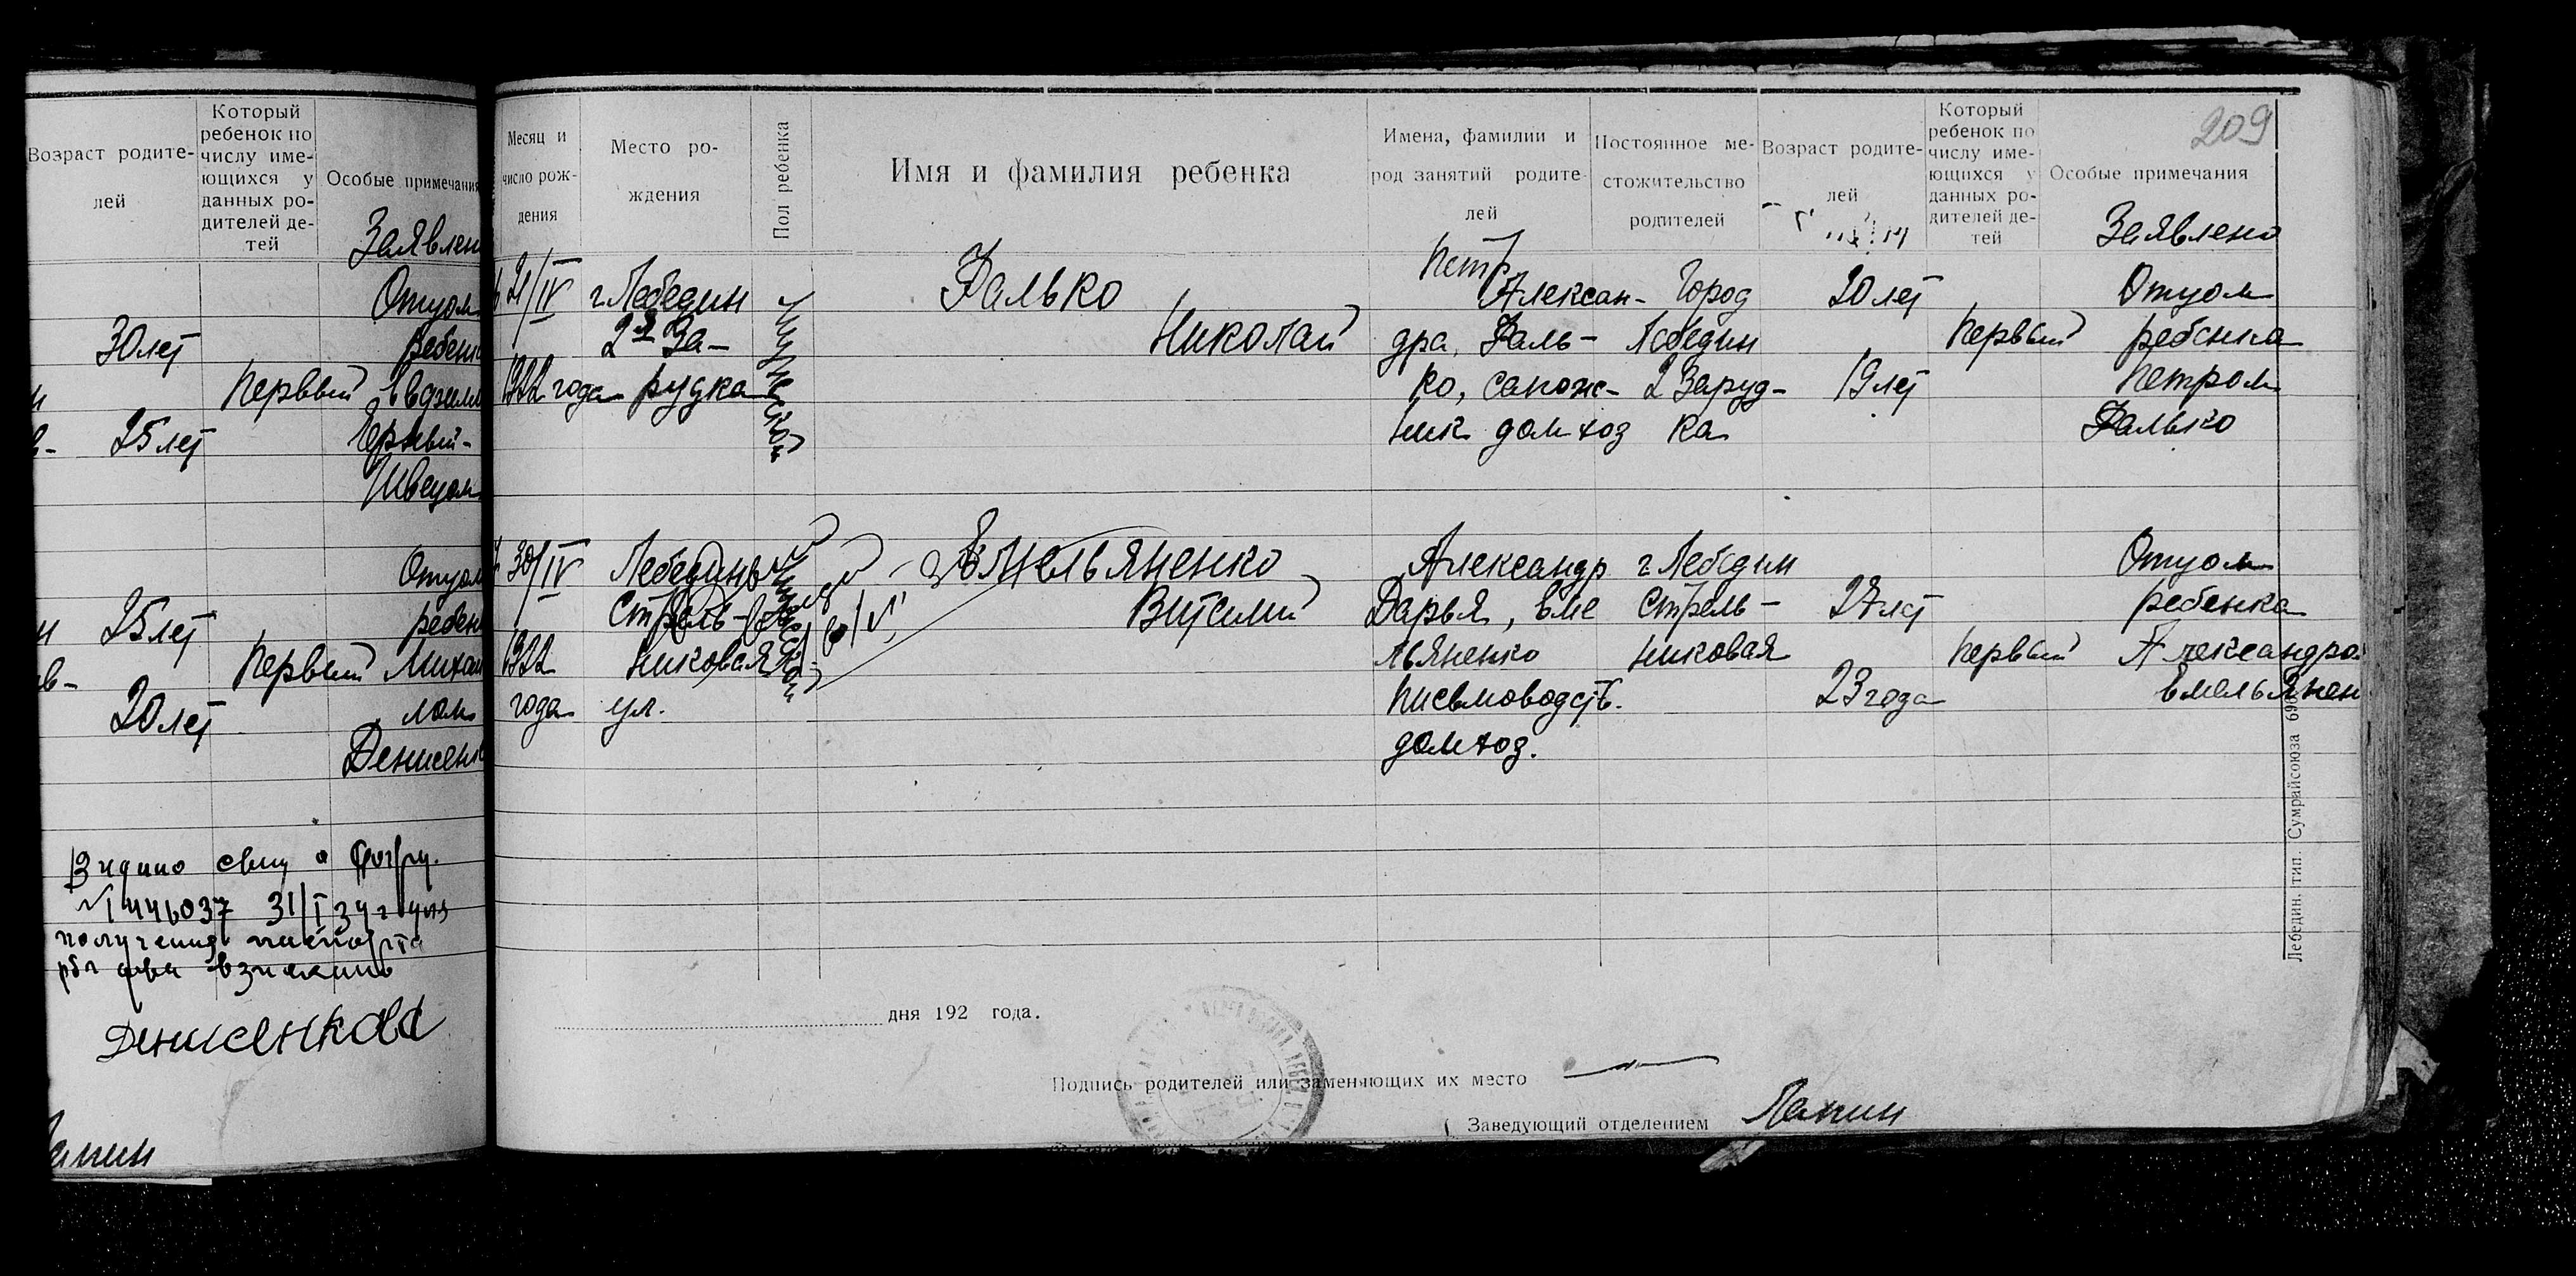 Возраст родите-
лей
Который
ребенок по
числу име-
ющихся у
данных ро-
дителей де-
тей
Особые примечания
Заявлен
Отцом
30 лет
Ребенк
Первый
25 лет
Швецом
Отцом
25 лет
ребен
Первый Михаи
лом
20 лет
Денисенк
Видано
№ 446037 31/I 34 г для
получения паспорта
Денисенкова
Месяц и
число рож-
дения
Место ро-
ждения
Пол ребенка
Имя и фамилия ребенка
Имена, фамилии и
род занятий родите-
лей
Постоянное ме-
стожительство
родителей
Возраст родите-
лей
Который
ребенок по
числу име-
ющихся у
данных ро-
дителей де-
тей
Особые примечания
209
Заявлено
21/IV
1922 года
г Лебедин
2я За-
рудка
Мужеской
Фалько
Николай
Петр
Алексан-
дра, Фаль-
ко, сапож-
ник домхоз
Город
Лебедин
2 Заруд-
ка
20 лет
19 лет
Первый
Отцом
ребенка
Петром
Фалько
30/IV
1922
года
Лебедин
Стрель-
никовая
ул.
Мужеской
Емельяненко
Виталий
Александр
Дарья, Еме
льяненко
письмоводст.
домхоз.
г Лебедин
Стрель-
никовая
27 лет
23 года
Первый
Отцом
ребенка
Александром
Емельянен
дня 192 года.
Подпись родителей или заменяющих их место
Заведующий отделением Лапин
Лебедин. тип. Сумрайсоюза